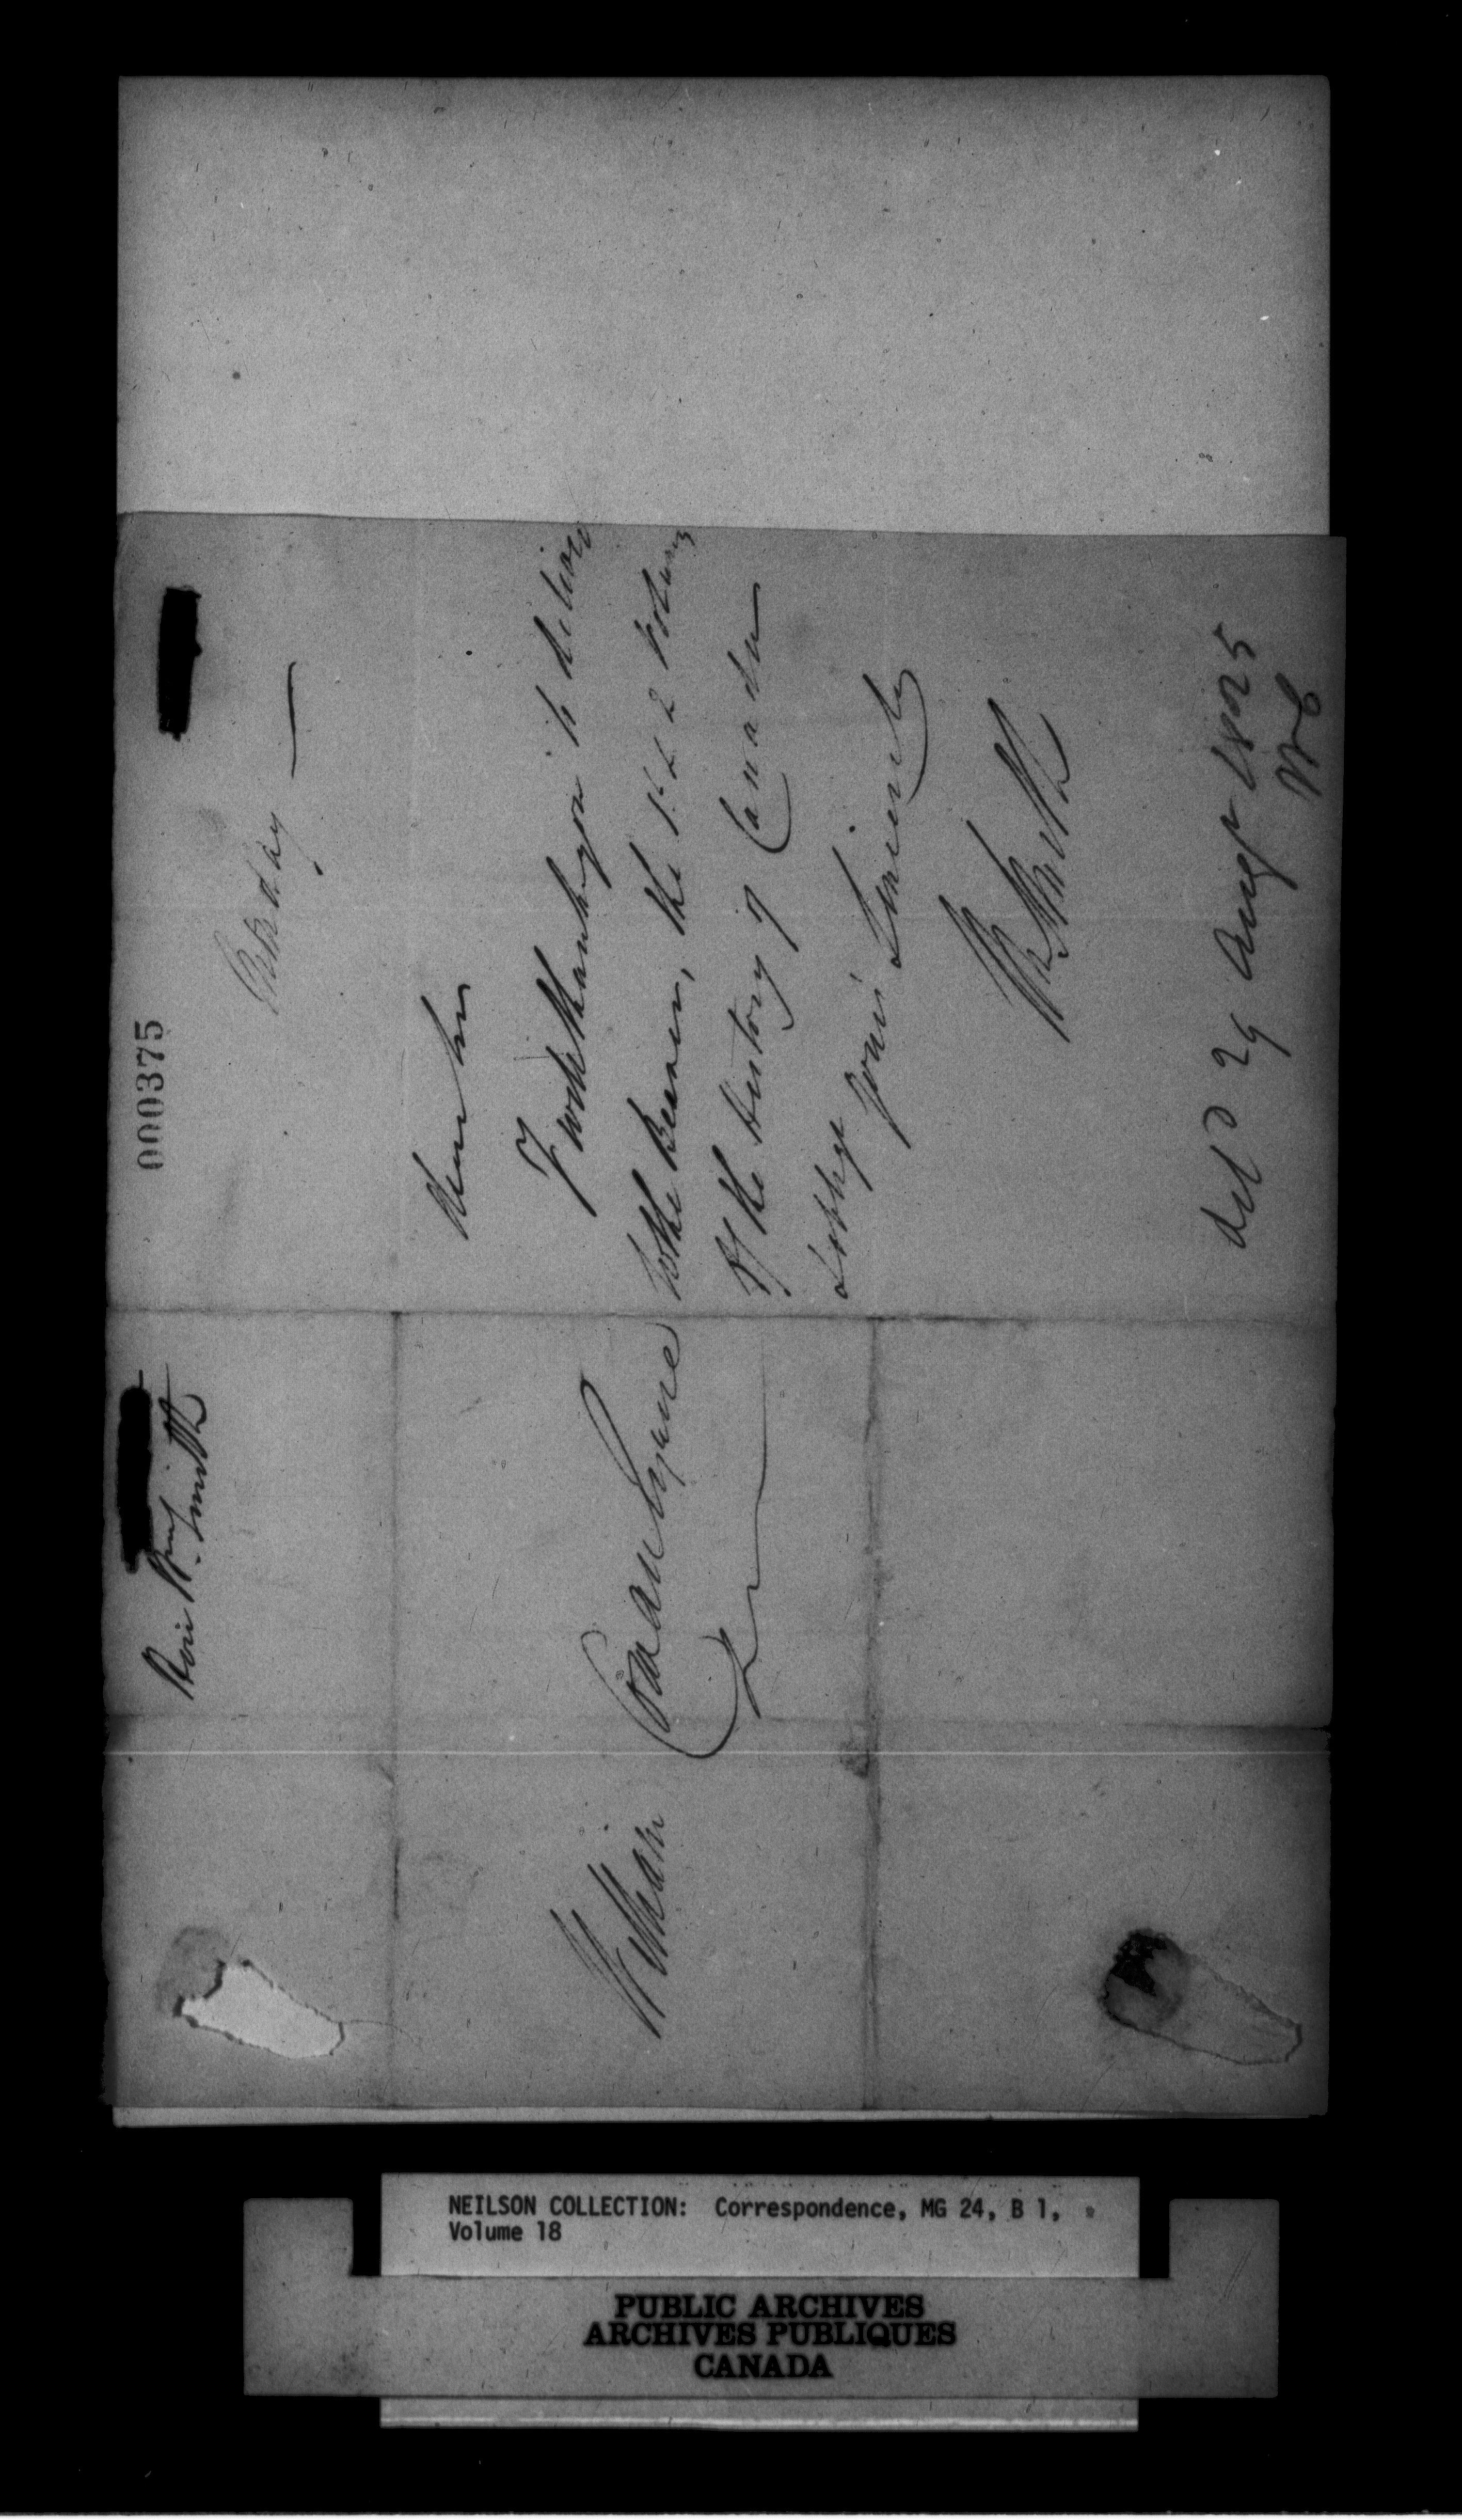 000375
Dear Sir
I will thank you to deliver
to the Bearer, the 1st & 2 Volumes
of the History of Canada
Yours Sincerely
Wm Smith
Deld 29 Augt 1825
WC
Honble Wm Smith
William Cowan Esquire
NEILSON COLLECTION: Correspondence, MG 24, B 1,
Volume 18
PUBLIC ARCHIVES
ARCHIVES PUBLIQUES
CANADA